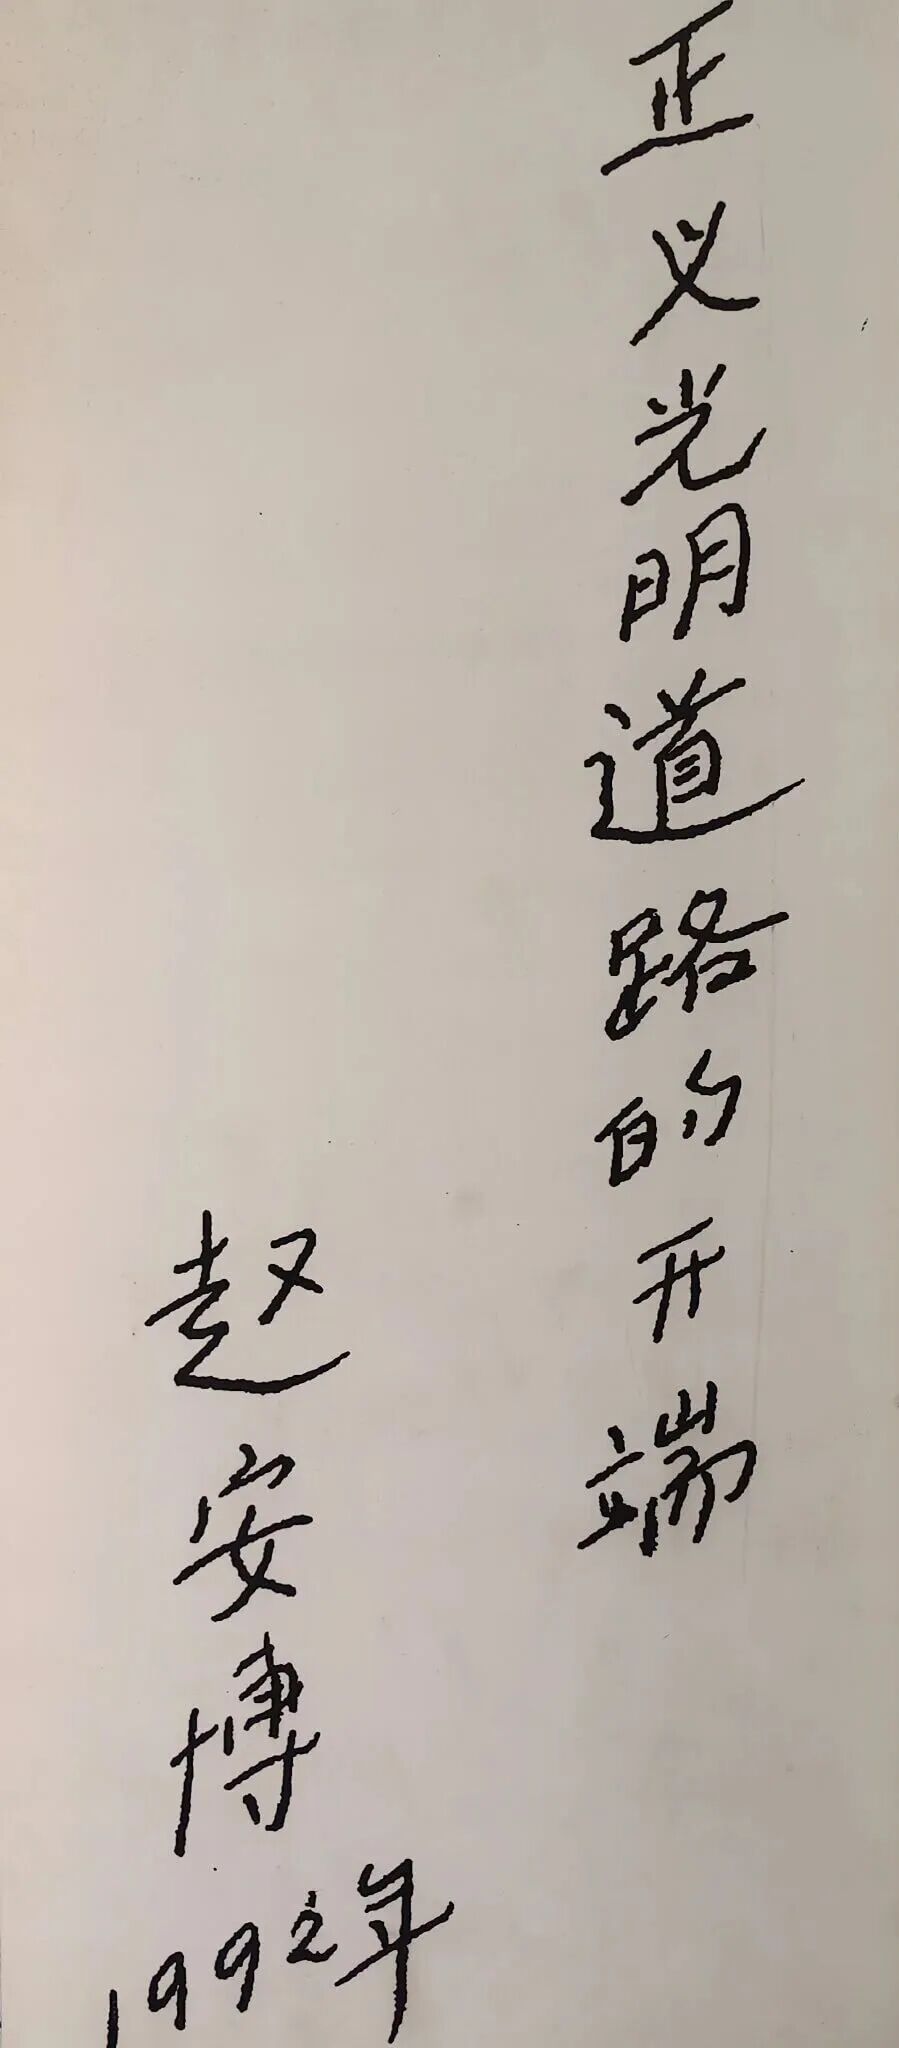 正义光明道路的开端
赵安博
1992年